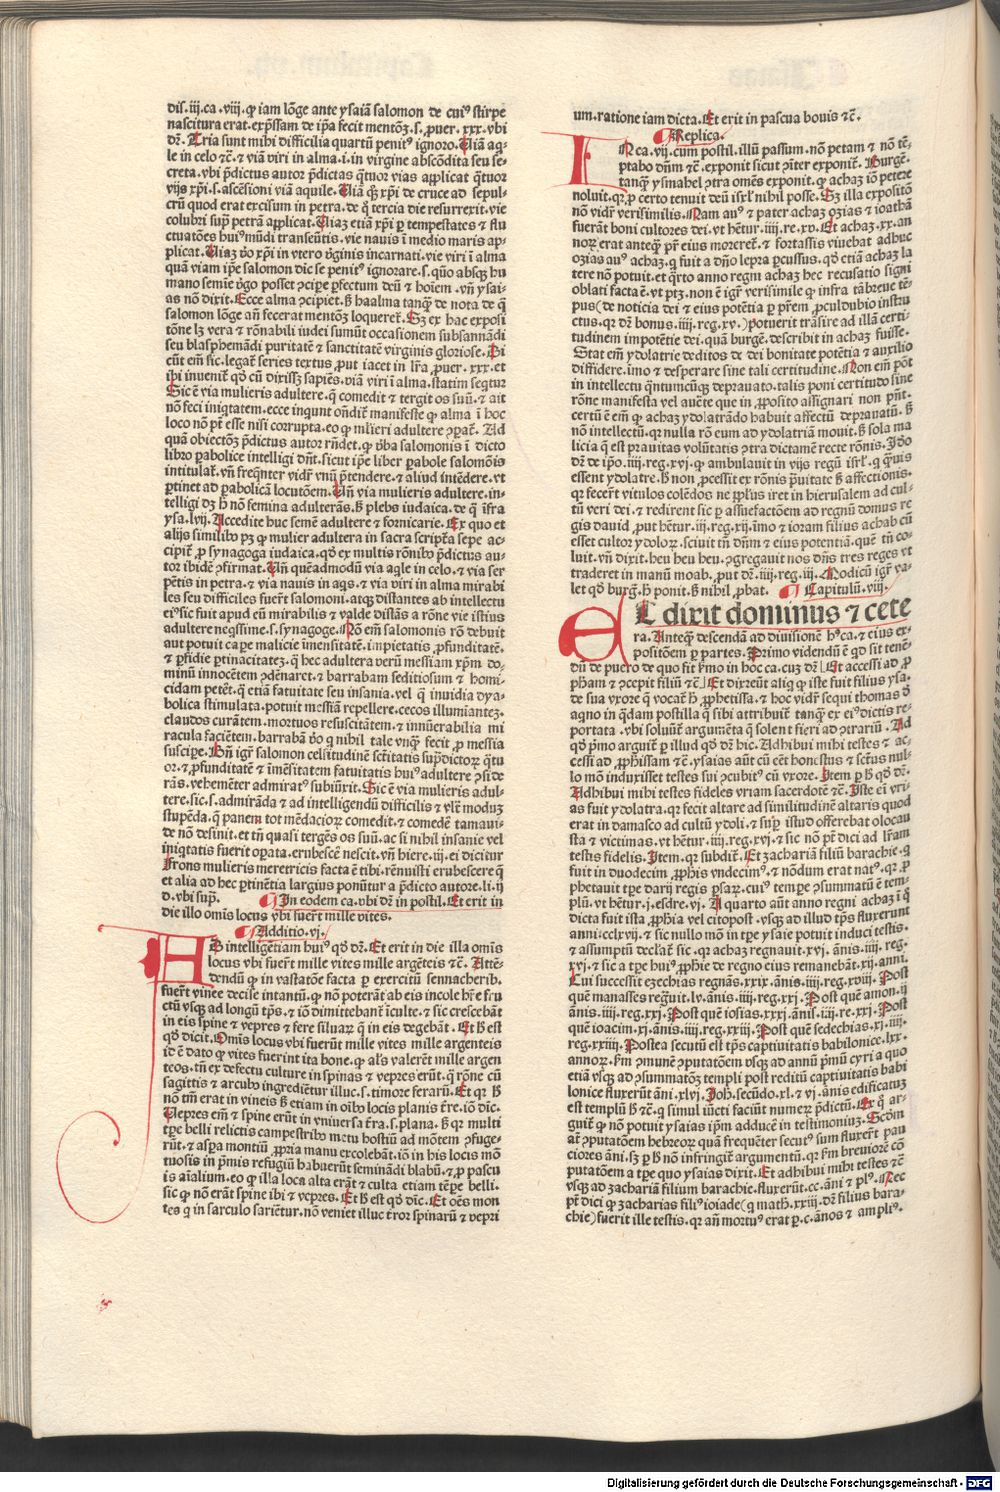 dis.iij.ca.viij.ꝙ iam lōge ante ysaiā salomon de cuiꝰ stirpe
nascitura erat.exp̄ssam de ip̄a fecit mentōꝫ.s.ꝓuer.xxx.vbi
dꝛ.Tria sunt mihi difficilia quartū penitꝰ ignoro.Uiā aq̄-
le in celo ⁊c̄.⁊ viā viri in alma.i.in virgine abscōdita seu se-
creta.vbi p̄dictus autor p̄dictas q̄tuor vias applicat q̄tuor
vijs xp̄i.s.ascēsioni viā aquile.Uiā qꝫ xp̄i de cruce ad sepul-
crū quod erat excisum in petra.de q̄ tercia die resurrexit.vie
colubri sup̄ petrā applicat.Uiaꝫ etiā xp̄i ꝑ tempestates ⁊ flu
ctuatōes huiꝰ mūdi transeūtis.vie nauis ī medio maris ap-
plicat.Uiaꝫ v̄o xp̄i in vtero v̄ginis incarnati.vie viri ī alma
quā viam ip̄e salomon dic̄ se penitꝰ ignorare.s.quō absqꝫ hu
mano semīe v̄go posset ꝯcip̄e ꝑfectum deū ⁊ hoīem.vn̄ ysai-
as nō dixit.Ecce alma ꝯcipiet.ß haalma tanqꝫ de nota de q̄
salomon lōge an̄ fecerat mentōꝫ loqueret̄.Sꝫ ex hac exposi
tōne lꝫ vera ⁊ rōnabili iudei sumūt occasionem subsannādi
seu blasphemādi puritatē ⁊ sanctitatē virginis gloriose.Di
cūt em̄ sic.legat̄ series textus ꝓut iacet in lr̄a ꝓuer.xxx.et
ibi inueniet̄ qd̄ cū dixissꝫ sapiēs.viā viri ī alma.statim seq̄tur
Sic ē via mulieris adultere.q̄ comedit ⁊ tergit os suū.⁊ ait
nō feci iniq̄tatem.ecce inqunt on̄dit̄ manifeste ꝙ alma ī hoc
loco nō pt̄ esse nisi corrupta.eo ꝙ mlieri adultere ꝯparat̄.Ad
quā obiectōꝫ p̄dictus autor rn̄det.ꝙ v̄ba salomonis ī dicto
libro ꝑabolice intelligi dn̄t.sicut ip̄e liber ꝑabole salomōis
intitulat̄.vn̄ freq̄nter vidr̄ vnū p̄tendere.⁊ aliud intēdere.vt
ꝑtinet ad ꝑabolicā locutōem.Un̄ via mulieris adultere.in-
telligi dꝫ ß nō femina adulterās.ß plebs iudaica.de q̄ ifra
ysa.lvij.Accedite huc semē adultere ⁊ fornicarie.Ex quo et
alijs similibꝰ pꝫ ꝙ mulier adultera in sacra scriptᷓa sepe ac-
cipit̄ ꝓ synagoga iudaica.qd̄ ex multis rōnibꝰ p̄dictus au-
tor ibidē ꝯfirmat.Un̄ quēadmodū via aq̄le in celo.⁊ via ser
pētis in petra.⁊ via nauis in aq̄s.⁊ via viri in alma mirabi
les seu difficiles fuer̄t salomoni.atqꝫ distantes ab intellectu
eiꝰ sic fuit apud eū mirabilis ⁊ valde distās a rōne vie istius
adultere neq̄ssime.s.synagoge.Nō em̄ salomonis rō debuit
aut potuit cape malicie īmensitatē.impietatis ꝓfunditatē.
⁊ ꝑfidie ꝑtinacitateꝫ.q̄ hec adultera verū messiam xp̄m do-
minū innocētem ꝯdēnaret.⁊ barrabam seditiosum ⁊ homi-
cidam petēt̄.q̄ etiā fatuitate seu insania.vel q̄ inuidia dya-
bolica stimulata.potuit messiā repellere.cecos illumīanteꝫ.
claudos curātem.mortuos resuscitātem.⁊ innūerabilia mi
racula faciētem.barrabā v̄o q̄ nihil tale vnqꝫ fecit ꝓ messia
suscipe.Un̄ igr̄ salomon celsitudinē sctītatis sup̄dictoꝝ q̄tu
or.⁊ ꝓfunditatē ⁊ imēsitatem fatuitatis huiꝰ adultere ꝯside
rās.vehemēter admiratꝰ subiūxit.Sic ē via mulieris adul-
tere.sic.s.admirāda ⁊ ad intelligendū difficilis ⁊ vltᷓ moduꝫ
stupēda.q̄ panem tot mēdacioꝝ comedit.⁊ comedē tamaui-
de nō desinit.et tn̄ quasi tergēs os suū.ac si nihil insanie vel
iniq̄tatis fuerit oꝑata.erubescē nescit.vn̄ hiere.iij.ei dicitur
Frons mulieris meretricis facta ē tibi.rēnuisti erubescere q̄
et alia ad hec ꝑtinētia largius ponūtur a p̄dicto autore.li.ij
d.vbi sup̄.    In eodem ca.vbi dꝛ in postil.Et erit in
die illo om̄is locus vbi fuer̄t mille vites.
Additio.vj.
AD intelligētiam huiꝰ qd̄ dꝛ.Et erit in die illa om̄is
locus vbi fuer̄t mille vites mille argēteis ⁊c̄.Attē-
dendū ꝙ in vastatōe facta ꝑ exercitū sennacherib.
fuer̄t vinee decise intantū.ꝙ nō poterāt ab eis incole hr̄e fru
ctū vsqꝫ ad longū tp̄s.⁊ iō dimittebant̄ īculte.⁊ sic crescebāt
in eis spine ⁊ vepres ⁊ fere siluaꝝ q̄ in eis degebāt.Et ß est
qd̄ dicit.Om̄is locus vbi fuerūt mille vites mille argenteis
id ē dato ꝙ vites fuerint ita bone.ꝙ al's valerēt mille argen
teos.tn̄ ex defectu culture in spinas ⁊ vepres erūt.q̄ rōne cū
sagittis ⁊ arcubꝰ ingrediētur illuc.s.timore feraꝝ.Et qꝛ ß
nō tm̄ erat in vineis ß etiam in oībꝰ locis planis tr̄e.iō dic̄.
Uepres em̄ ⁊ spine erūt in vniuersa tr̄a.s.plana.ß qꝛ multi
tp̄e belli relictis campestribꝰ metu hostiū ad mōtem ꝯfuge-
rūt.⁊ aspa montiū ꝓpria manu excolebāt.iō in his locis mō
tuosis in p̄mis refugiū habuerūt seminādi bladū.⁊ ꝓ pascu
is aīalium.eo ꝙ illa loca alta erāt ⁊ culta etiam tēpe belli.
sic ꝙ nō erāt spine ibi ⁊ vepres.Et ß est qd̄ dic̄.Et oēs mon
tes q̄ in sarculo sariētur.nō veniet illuc tr̄or spinarū ⁊ vepri
um.ratione iam dicta.Et erit in pascua bouis ⁊c̄.
Replica.
IN ca.vij.cum postil.illū passum.nō petam ⁊ nō tē-
ptabo dn̄m ⁊c̄.exponit sicut ꝯiter exponit̄.Burgē.
tanqꝫ ysmahel ꝯtra om̄es exponit.ꝙ achaꝫ iō petere
noluit.qꝛ ꝓ certo tenuit deū isrl̄ nihil posse.Sꝫ illa expositō
nō vidr̄ verisimilis.Nam auꝰ ⁊ pater achaꝫ oꝫias ⁊ ioathā
fuerāt boni cultores dei.vt hētur.iiij.re.xv.Et achaꝫ.xx.an
noꝝ erat anteqꝫ pr̄ eius moreret̄.⁊ fortassis viuebat adhuc
oꝫias auꝰ achaꝫ.q̄ fuit a dn̄o lepra ꝑcussus.qd̄ etiā achaꝫ la
tere nō potuit.et q̄rto anno regni achaꝫ hec recusatio signi
oblati facta ē.vt ptꝫ.non ē igr̄ verisimile ꝙ infra tā breue tē-
pus(de noticia dei ⁊ eius potētia ꝑ pr̄em ꝓculdubio instru
ctus.qꝛ dꝛ bonus.iiij.reg.xv.)potuerit trāsire ad illā certi-
tudinem impotētie dei.quā burgē.describit in achaꝫ fuisse.
Stat em̄ ydolatrie deditos de dei bonitate potētia ⁊ auxilio
diffidere.imo ⁊ desperare sine tali certitudine.Non em̄ pōt
in intellectu q̄ntumcūqꝫ deprauato.talis poni certitudo sine
rōne manifesta vel auēte que in ꝓposito assignari non pn̄t.
certū ē em̄ ꝙ achaꝫ ydolatrādo habuit affectū deprauatū.ß
nō intellectū.qꝛ nulla rō eum ad ydolatriā mouit.ß sola ma
licia q̄ est prauitas volūtatis ꝯtra dictamē recte rōnis.Idō
dꝛ de ip̄o.iiij.reg.xvj.ꝙ ambulauit in vijs regū isrl̄.q̄ q̄uis
essent ydolatre.ß non ꝓcessit ex rōnis prauitate ß affectionis.
qꝛ fecer̄t vitulos colēdos ne ppl̄us iret in hierusalem ad cul-
tū veri dei.⁊ redirent sic ꝑ assuefactōem ad regnū domus re
gis dauid ꝓut hētur.iij.reg.xij.īmo ⁊ ioram filius achab cū
esset cultor ydoloꝝ.sciuit tn̄ dn̄m ⁊ eius potentiā.quē tn̄ co-
luit.vn̄ dixit.heu heu heu.ꝯgregauit nos dn̄s tres reges vt
traderet in manū moab.ꝓut dꝛ.iiij.reg.iij.Modicū igr̄ va-
let qd̄ burḡ.ß ponit.ß nihil ꝓbat.    Capitulū.viij.
ET dixit dominus ⁊ cete
ra.Anteqꝫ descendā ad diuisionē hꝰ ca.⁊ eius ex-
positōem ꝑ partes.Primo videndū ē qd̄ sit tenē-
dū de puero de quo fit ẜmo in hoc ca.cuꝫ dꝛ Et accessi ad ꝓ
ph̄am ⁊ ꝯcepit filiū ⁊c̄ Et dixreūt aliq̄ ꝙ iste fuit filius ysa.
de sua vxore q̄ vocat̄ ß ꝓphetissa.⁊ hoc vidr̄ sequi thomas d̄
aqno in q̄dam postilla q̄ sibi attribuit̄ tanqꝫ ex eiꝰ dictis re-
portata.vbi soluūt̄ argumēta q̄ solent fieri ad ꝯtrariū.Ad
qd̄ p̄mo arguit̄ ꝑ illud qd̄ dꝛ hic.Adhibui mihi testes ⁊ ac-
cessi ad ꝓph̄issam ⁊c̄.ysaias aūt cū eēt honestus ⁊ sctūs nul-
lo mō induxisset testes sui ꝯcubitꝰ cū vxore.Item ꝑ ß qd̄ dꝛ.
Adhibui mihi testes fideles vriam sacerdotē ⁊c̄.Iste em̄ vri-
as fuit ydolatra.qꝛ fecit altare ad similitudinē altaris quod
erat in damasco ad cultū ydoli.⁊ sup̄ istud offerebat olocau
sta ⁊ victimas.vt hētur.iiij.reg.xvj.⁊ sic nō pt̄ dici ad lr̄am
testis fidelis.Item.qꝛ subdit̄.Et ꝫachariā filiū barachie.q̄
fuit in duodecim ꝓph̄is vndecimꝰ.⁊ nōdum erat natꝰ.qꝛ ꝓ
phetauit tp̄e darij regis psaꝝ.cuiꝰ tempe ꝯsummatū ē tem-
plū.vt hētur.j.esdre.vj.A quarto aūt anno regni achaꝫ ī q̄
dicta fuit ista ꝓph̄ia vel citopost.vsqꝫ ad illud tp̄s fluxerunt
anni.cclxvij.⁊ sic nullo mō in tp̄e ysaie potuit induci testis.
⁊ assumptū declat̄ sic.qꝛ achaꝫ regnauit.xvj.ānis.iiij.reg.
xvj.⁊ sic a tp̄e huiꝰ ꝓph̄ie de regno eius remanebāt.xij.anni.
Cui successit eꝫechias regnās.xxix.ānis.iiij.reg.xviij.Post
quē manasses regūit.lv.ānis.iiij.reg.xxj.Post quē amon.ij
ānis.iiij.reg.xxj.Post quē iosias.xxxj.ānis.iiij.re.xxj.Post
quē ioacim.xj.ānis.iiij.reg.xxiij.Post quē sedechias.xj.iiij.
reg.xxiiij.Postea secutū est tp̄s captiuitatis babilonice.lxx.
annoꝝ.ẜm ꝯmunē ꝯputatōem vsqꝫ ad annū p̄mū cyri a quo
etiā vsqꝫ ad ꝯsummatōꝫ templi post reditū captiuitatis babi
lonice fluxerūt āni.xlvj.Joh̄.secūdo.xl.⁊ vj.ānis edificatuꝫ
est templū ß ⁊c̄.q̄ simul iūcti faciūt numeꝝ p̄dictū.Ex q̄ ar-
guit̄ ꝙ nō potuit ysaias ip̄m adducē in testimoniuꝫ.Scd̄m
at̄ ꝯputatōem hebreoꝝ quā frequēter secutꝰ sum fluxer̄t pau
ciores āni.sꝫ ꝑ ß nō infringit̄ argumētū.qꝛ ẜm breuiorē cō
putatōem a tp̄e quo ysaias dixit.Et adhibui mihi testes ⁊c̄
vsqꝫ ad ꝫachariā filium barachie.fluxerūt.cc.āni ⁊ plꝰ.Nec
pt̄ dici ꝙ ꝫacharias filiꝰ ioiade(q̄ math̄.xxiij.dꝛ filius bara-
chie)fuerit ille testis.qꝛ an̄ mortuꝰ erat ꝑ.c.ānos ⁊ ampliꝰ.
Digitalisierung gefördert durch die Deutsche Forschungsgemeinschaft - DFG